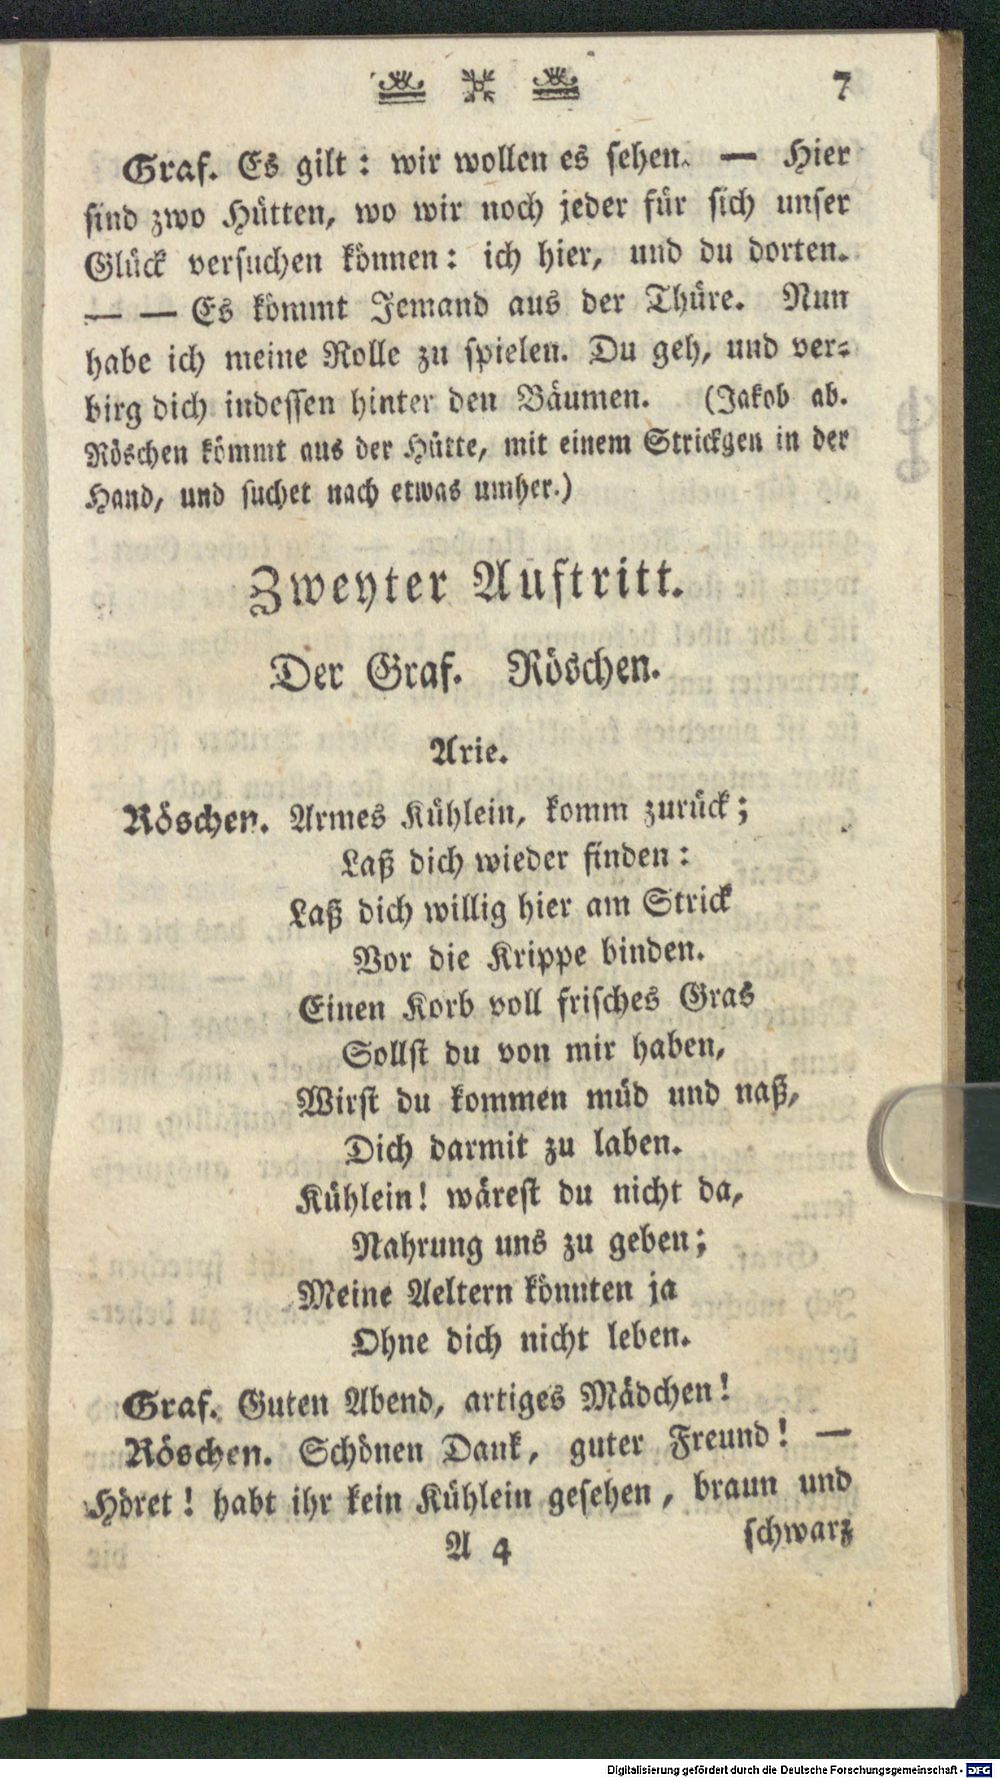 7
Graf. Es gilt: wir wollen es sehen. — Hier
sind zwo Hütten, wo wir noch jeder für sich unser
Glück versuchen können: ich hier, und du dorten.
— — Es kömmt Jemand aus der Thüre. Nun
habe ich meine Rolle zu spielen. Du geh, und ver-
birg dich indessen hinter den Bäumen. (Jakob ab.
Röschen kömmt aus der Hütte, mit einem Strickgen in der
Hand, und suchet nach etwas umher.)
Zweyter Auftritt.
Der Graf. Röschen.
Arie.
Röschen. Armes Kühlein, komm zurück;
Laß dich wieder finden:
Laß dich willig hier am Strick
Vor die Krippe binden.
Einen Korb voll frisches Gras
Sollst du von mir haben,
Wirst du kommen müd und naß,
Dich darmit zu laben.
Kühlein! wärest du nicht da,
Nahrung uns zu geben;
Meine Aeltern könnten ja
Ohne dich nicht leben.
Graf. Guten Abend, artiges Mädchen!
Röschen. Schönen Dank, guter Freund! —
Höret! habt ihr kein Kühlein gesehen, braun und
A 4 schwarz
Digitalisierung gefördert durch die Deutsche Forschungsgemeinschaft - DFG